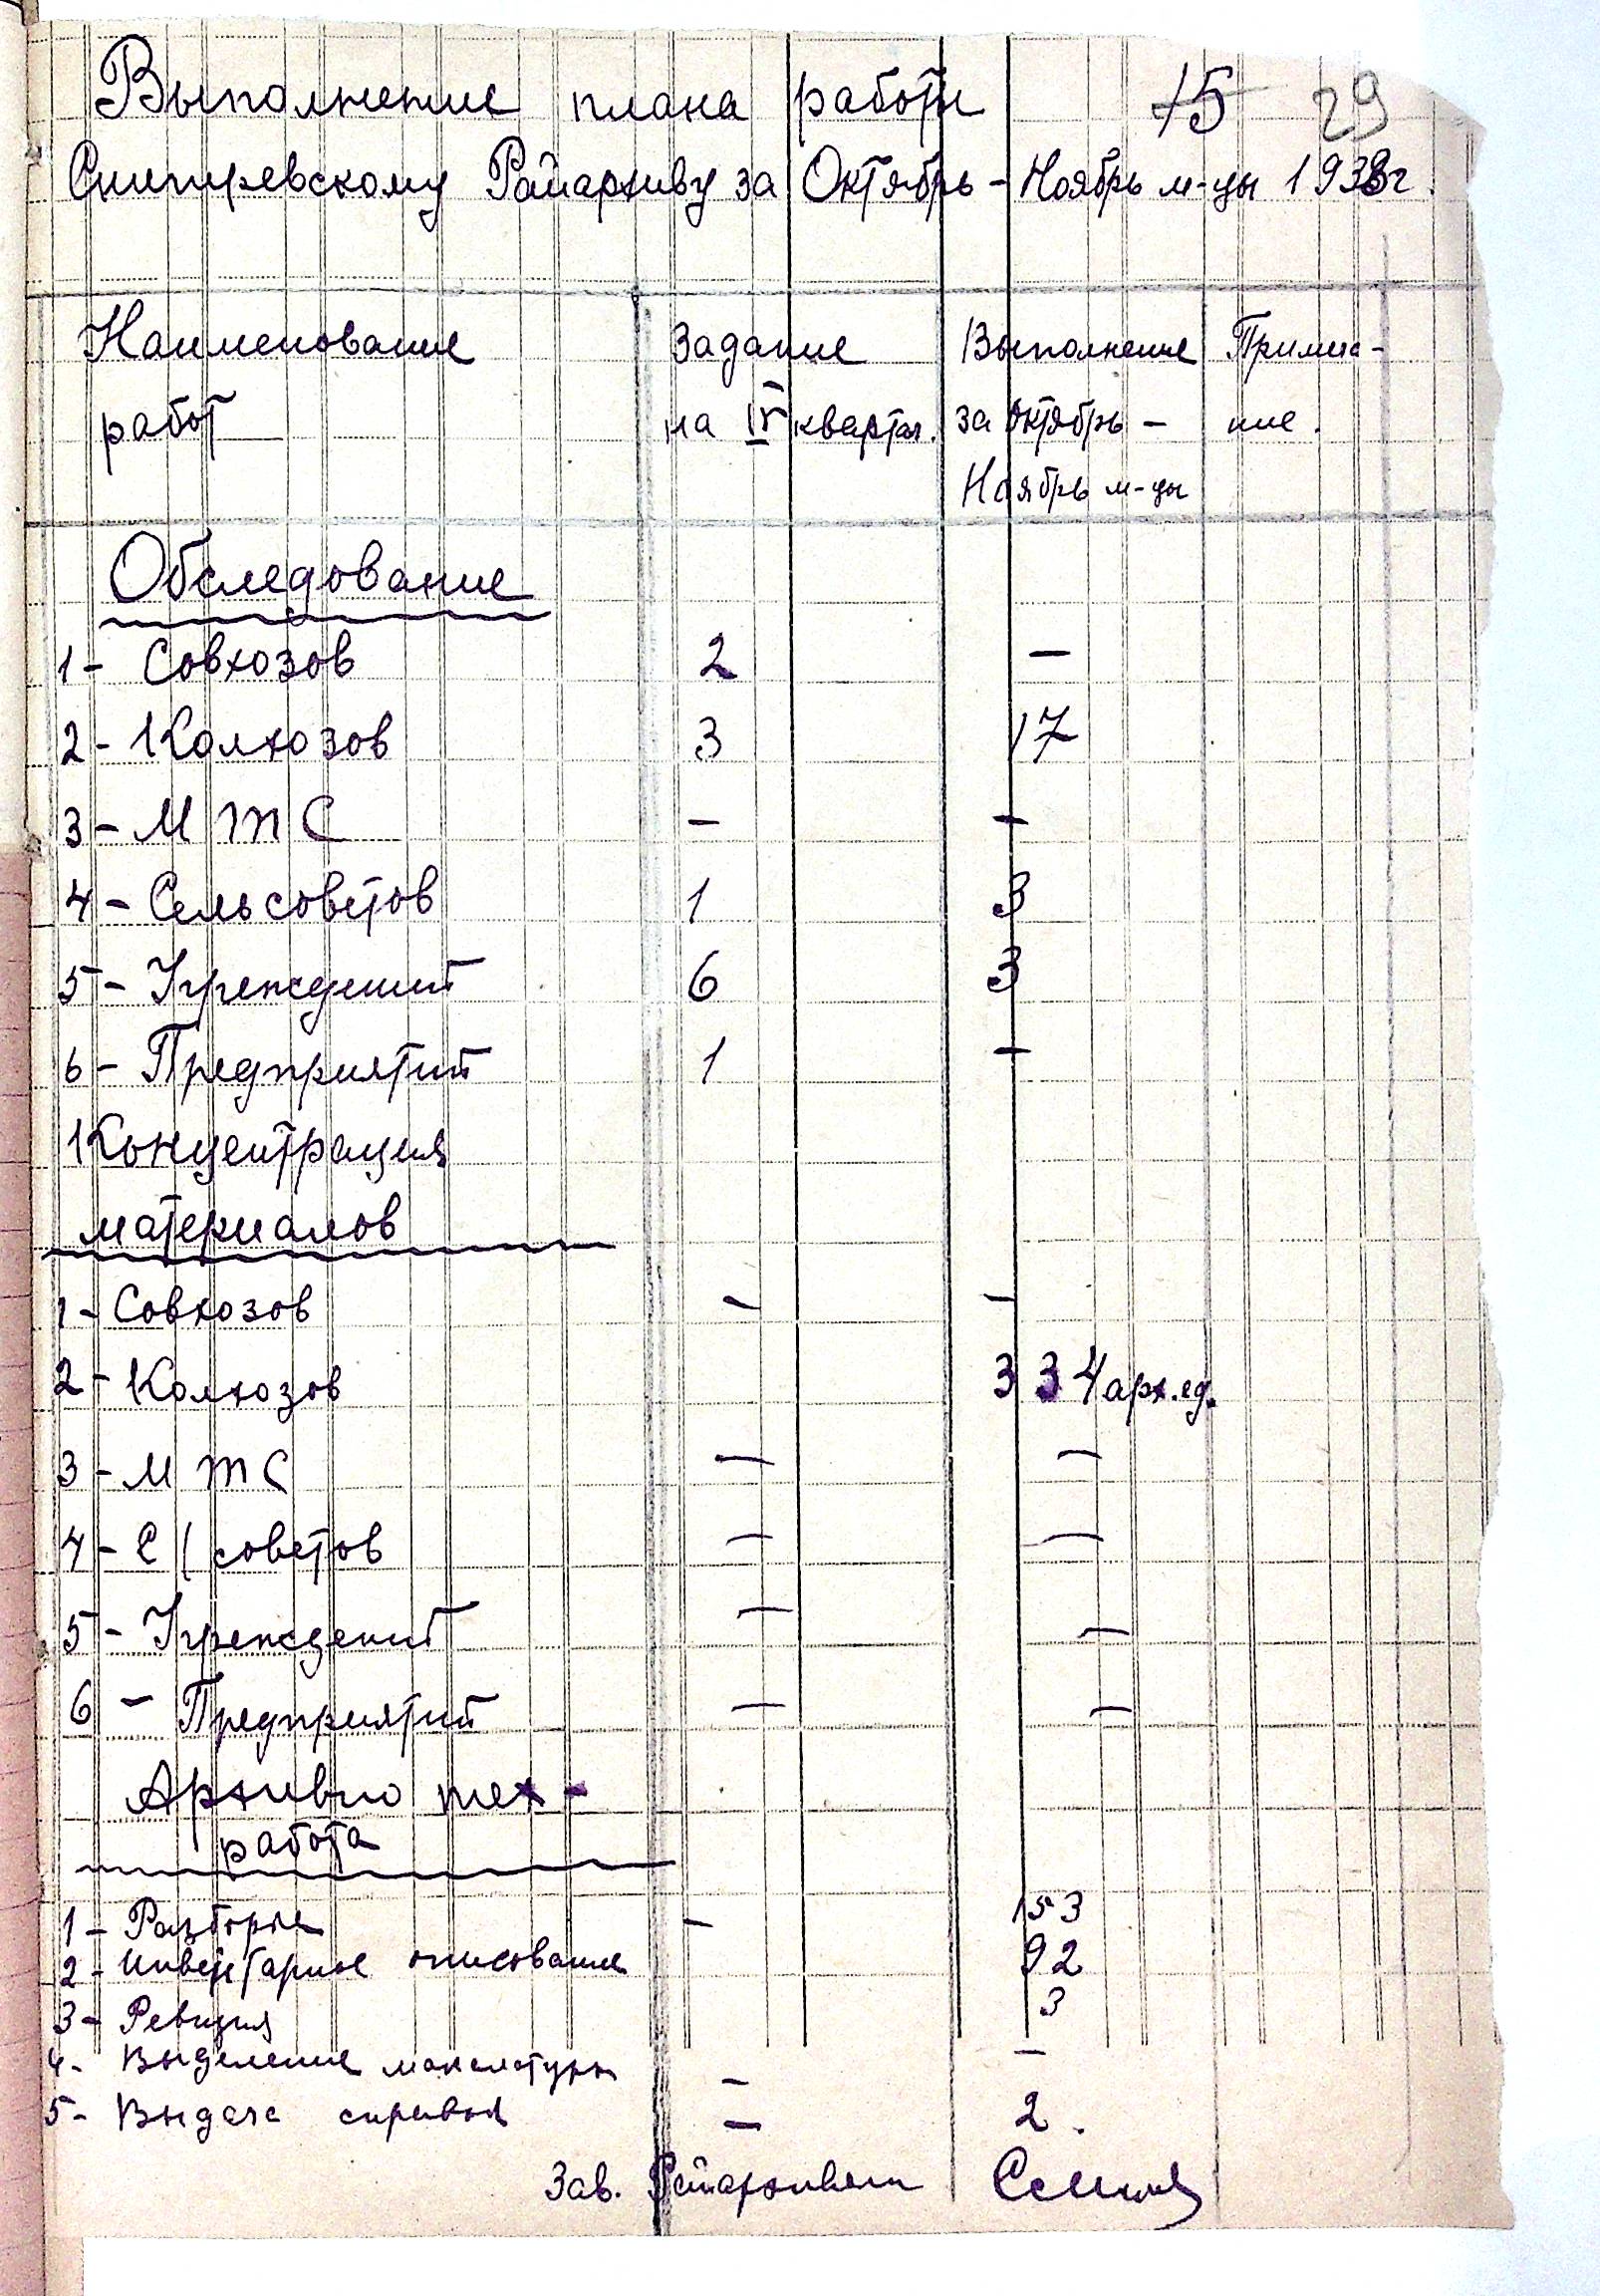 Выполнение плана работы 15 29
Снигиревскому Райархиву за Октябрь - Ноябрь м-цы 1938г.
Наименование Задание Выполнение Примеча-
работ на IV квартал. за Октябрь - ние.
Ноябрь м-цы
Обследование
1- Совхозов 2 —
2- Колхозов 3 17
3- МТС — —
4- Сельсоветов 1 3
5- Учреждений 6 3
6- Предприятий 1 —
Концентрация
материалов
1- Совхозов — —
2- Колхозов 334 арх.ед.
3- МТС — —
4- С/советов — —
5- Учреждений — —
6- Предприятий — —
Архивно тех-
работа
1- Разборка — 153
2- Инвентарное описование 92
3- Ревизия 3
4- Выделение макулатуры — —
5- Выдача справок — 2.
Зав. Райархивом